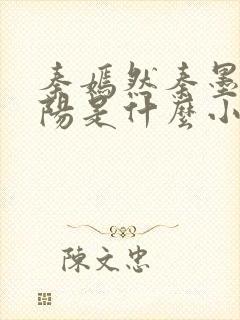 秦嫣然秦墨
陽是什麼小
陳文忠